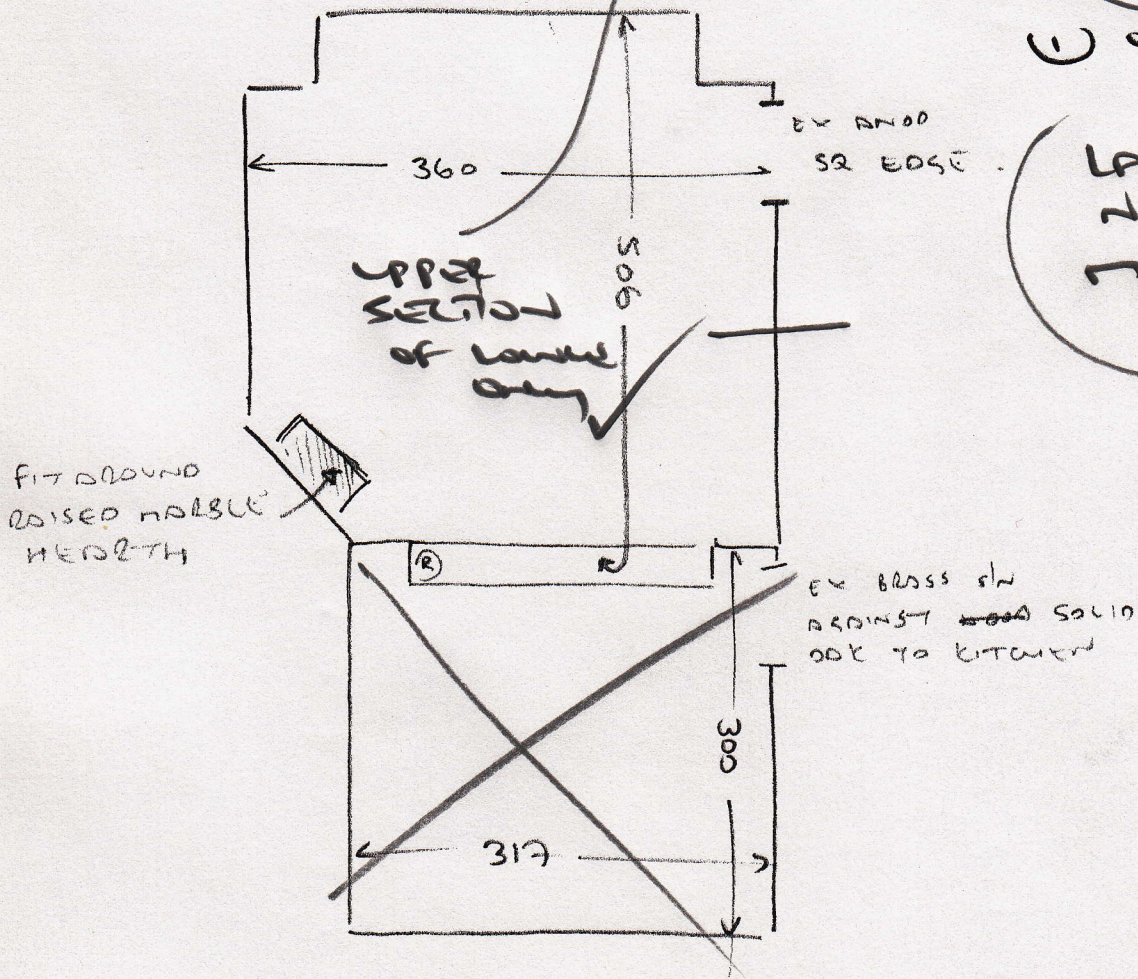 EX ANOD
SQ EDGE.
360
506
UPPER
SECTION
OF LOUNGE
ONLY
FIT AROUND
RAISED MARBLE
HEARTH
R
EX BRASS S/N
AGAINST SOLID
OAK TO KITCHEN
300
317